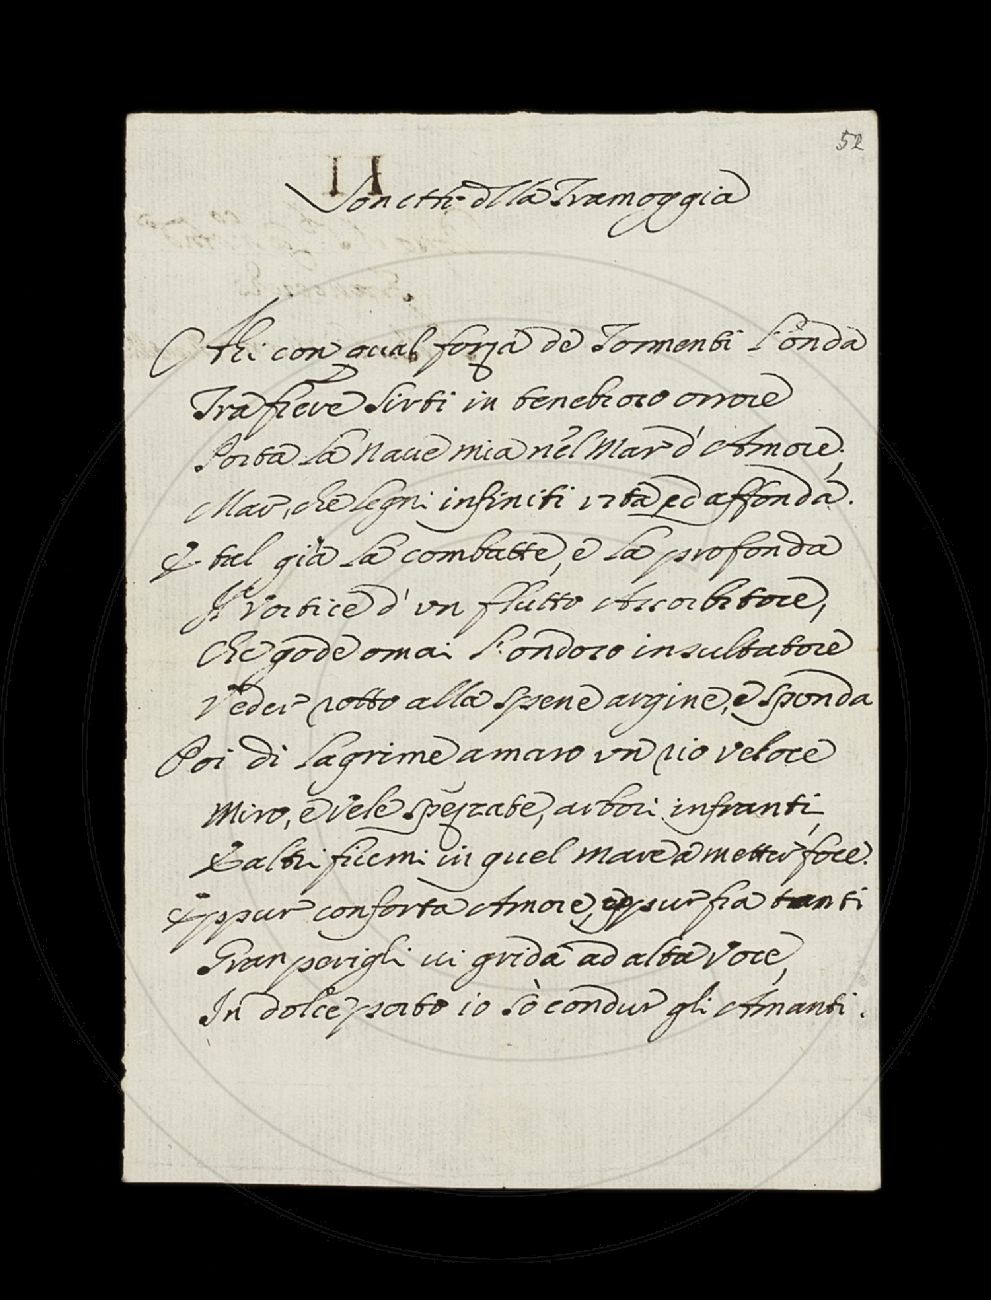 52
II
Sonetti della Tramoggia
Ahi con qual forza de Tormenti l'onda
Tra fiere Sirti in tenebroso orrore
Porta la Naue mia nel Mar d'Amore;
Mar, che legni infiniti vrta ed affonda.
E tal già la combatte, e la profonda
Il Vortice d'vn flutto Assorbitore,
Che gode omai l'ondoso insultatore
Veder rotto alla spene argine, e sponda
Poi di lagrime amaro vn rio veloce
Miro, e vele spezzate, arbori infranti,
E altri fiumi in quel mare a metter foce.
Eppur conforta Amore, eppur fra tanti
Gran perigli ui grida ad alta Voce,
In dolce porto io sò condur gli Amanti.